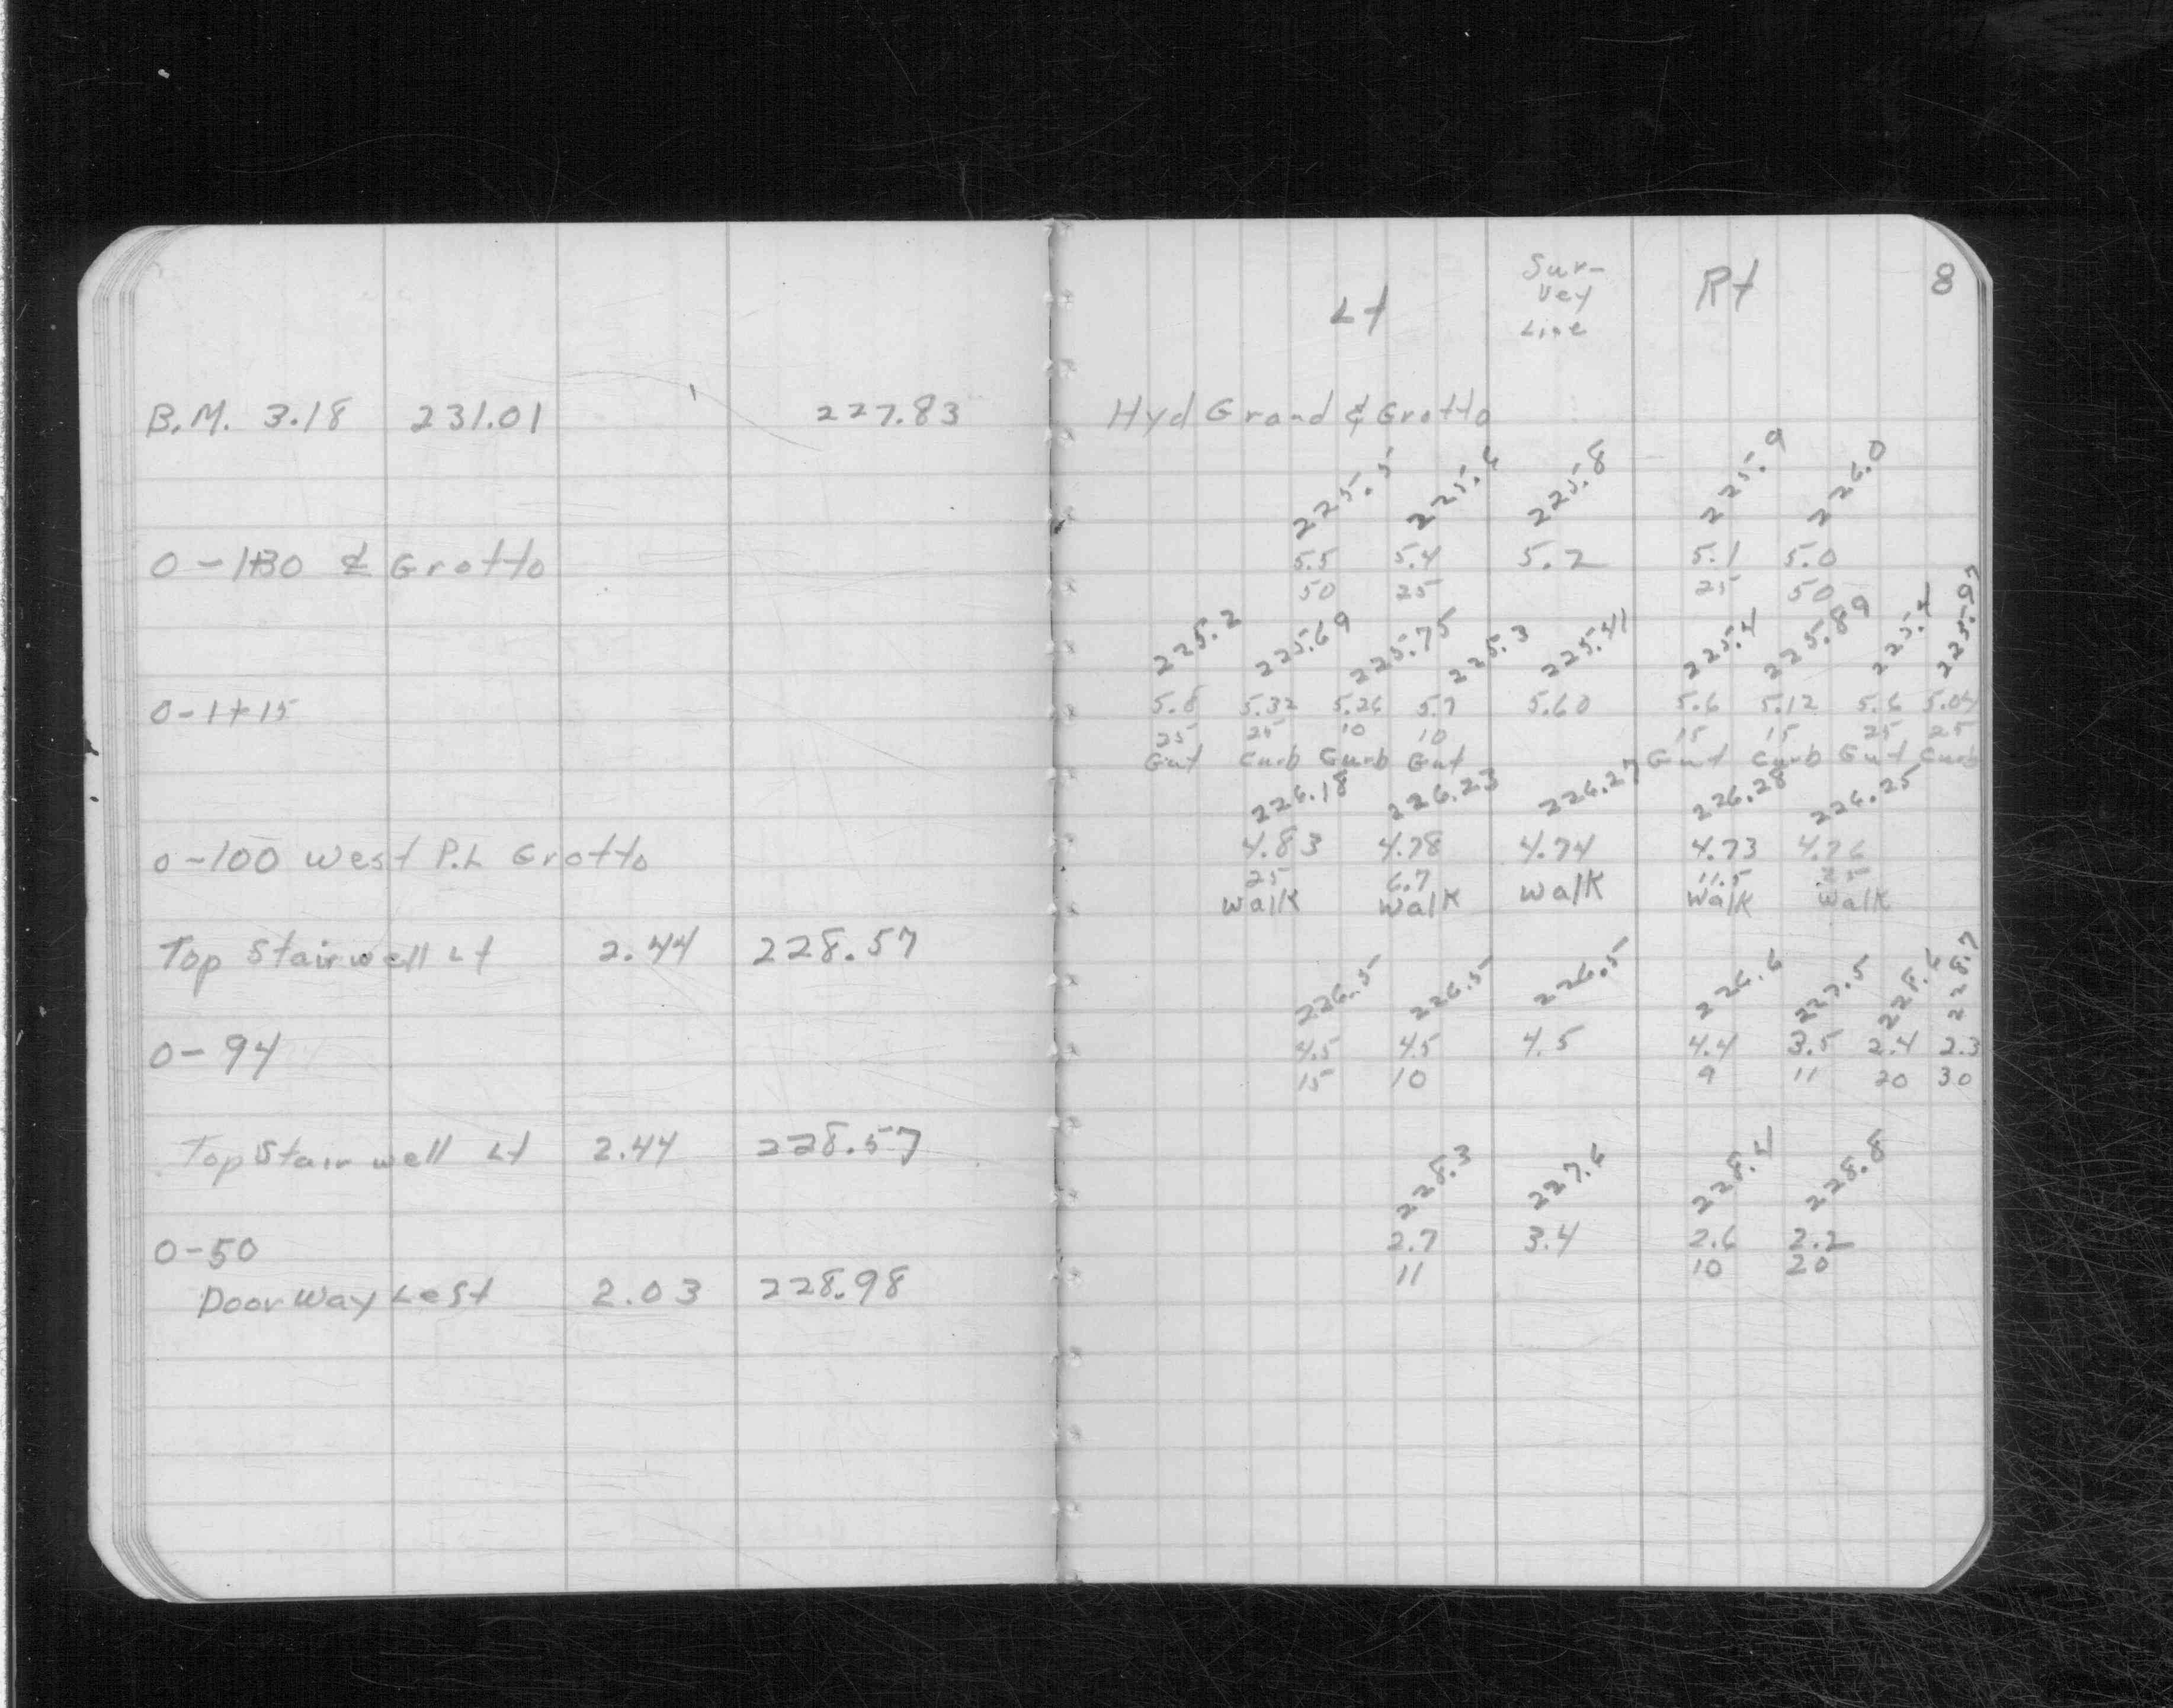 8
Lt Sur-vey Line Rt
B.M. 3.18 231.01 227.83 Hyd Grand & Grotto
225.5 225.6 225.8 225.9 226.0
0-1+30 ℄ Grotto 5.5 5.4 5.2 5.1 5.0
50 25 25 50
225.2 225.69 225.75 225.3 225.41 225.4 225.89 225.4 225.97
0-1+15 5.8 5.32 5.26 5.7 5.60 5.6 5.12 5.6 5.04
25 25 10 10 15 15 25 25
Gut Curb Curb Gut Gut Curb Gut Curb
226.18 226.23 226.27 226.28 226.25
0-100 West P.L Grotto 4.83 4.78 4.74 4.73 4.76
25 6.7 11.5 25
Walk Walk Walk Walk Walk
Top Stairwell Lt 2.44 228.57
226.5 226.5 226.5 226.6 227.5 228.6 228.7
0-94 4.5 4.5 4.5 4.4 3.5 2.4 2.3
15 10 9 11 20 30
Top Stair well Lt 2.44 228.57
228.3 227.6 228.4 228.8
0-50 2.7 3.4 2.6 2.2
11 10 20
Door Way Left 2.03 228.98